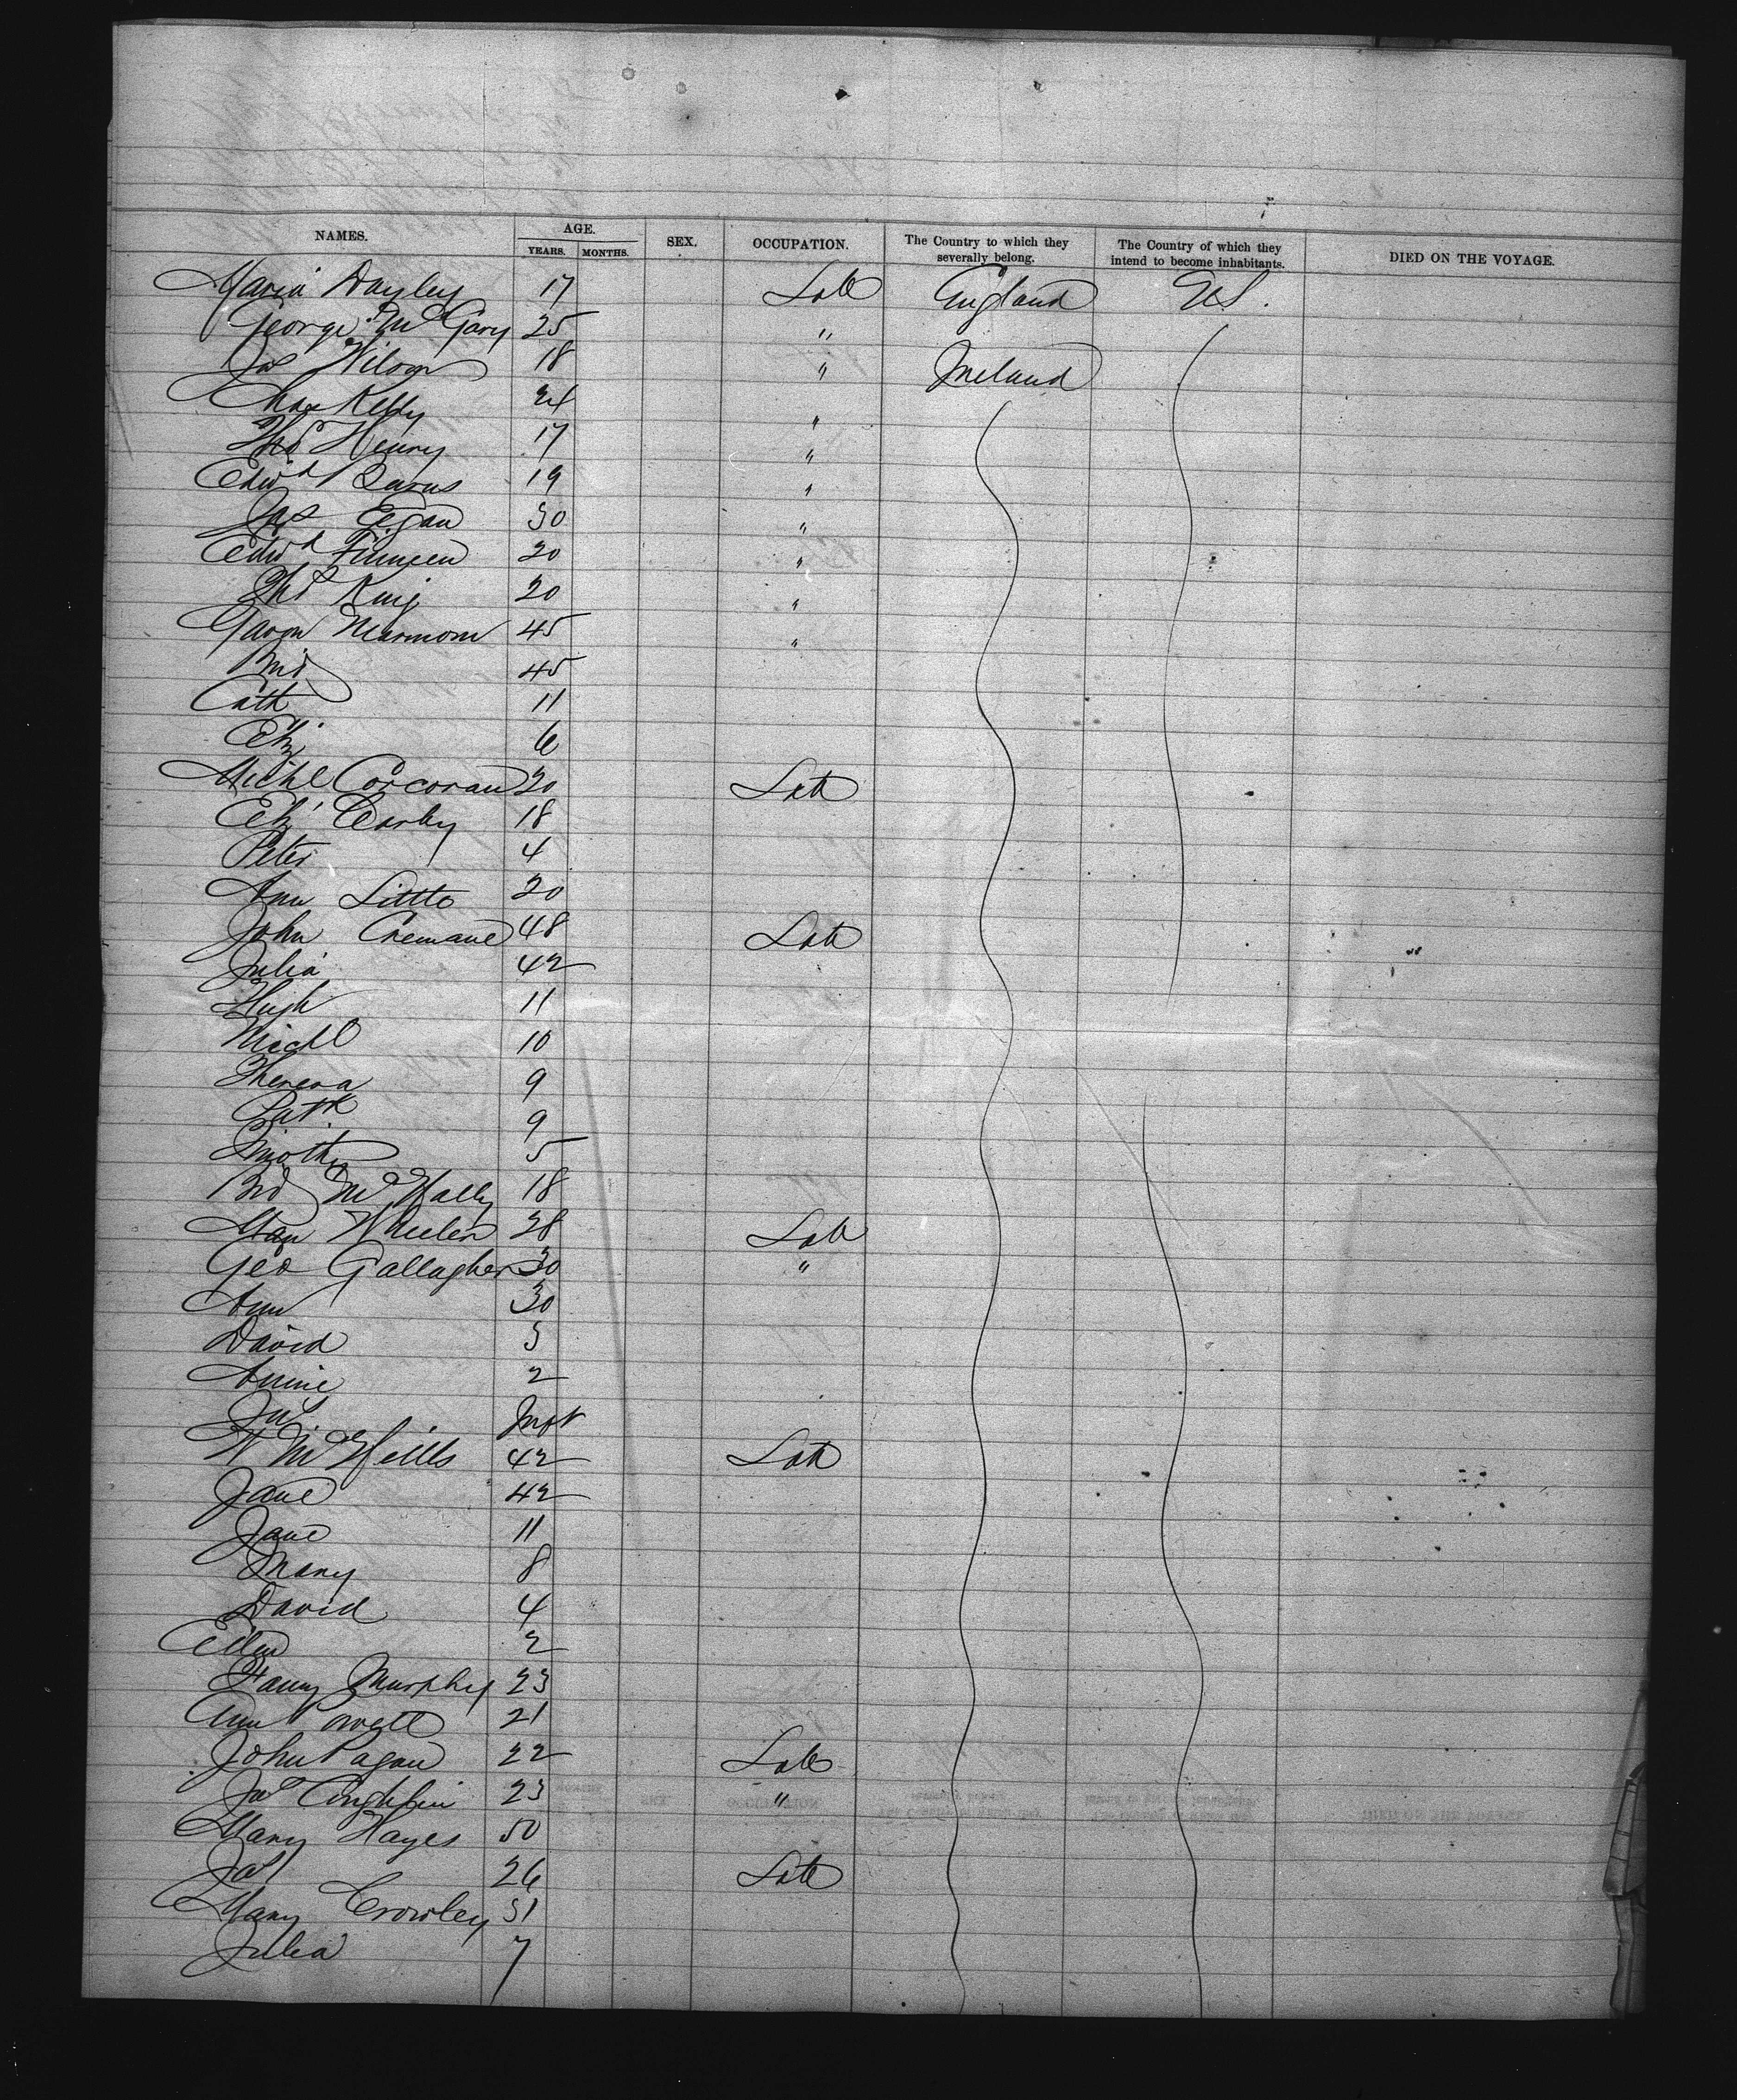 NAMES. AGE. YEARS. MONTHS. SEX. OCCUPATION. The Country to which they severally belong. The Country of which they intend to become inhabitants. DIED ON THE VOYAGE.
Maria Dayley 17 Lab England U.S.
George McGary 25 "
Jas Wilson 18 " Ireland
Chas Kelly 24 "
Thos Henry 17 "
Edwd 19 "
Jas Egan 30 "
Edwd 20 "
Thos King 20 "
45 "
Brid 45
Cath 11
Eliz 6
Michl Corcoran 20 Lab
Eliz Darby 18
Peter 4
Ann Little 20
John 48 Lab
Julia 42
Hugh 11
Michl 10
Theresa 9
Patk 9
Timothy 5
Brd McNally 18
28 Lab
Geo Gallagher 30 "
Ann 30
David 3
Annie 2
Jas Inft
42 Lab
Jane 42
Jane 11
Mary 8
David 4
Ellen 2
Fanny Murphy 23
Ann 21
John Pagan 22 Lab
Jas Coughlin 23 "
Mary Hayes 50
Jas 26 Lab
Mary Crowley 31
Julia 7